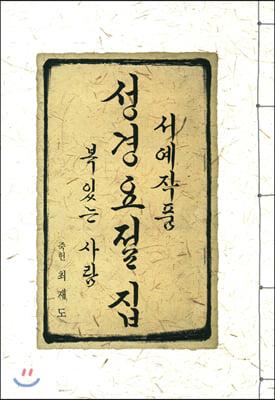 서예작품
성경요절집
복있는 사람
죽헌 최재도